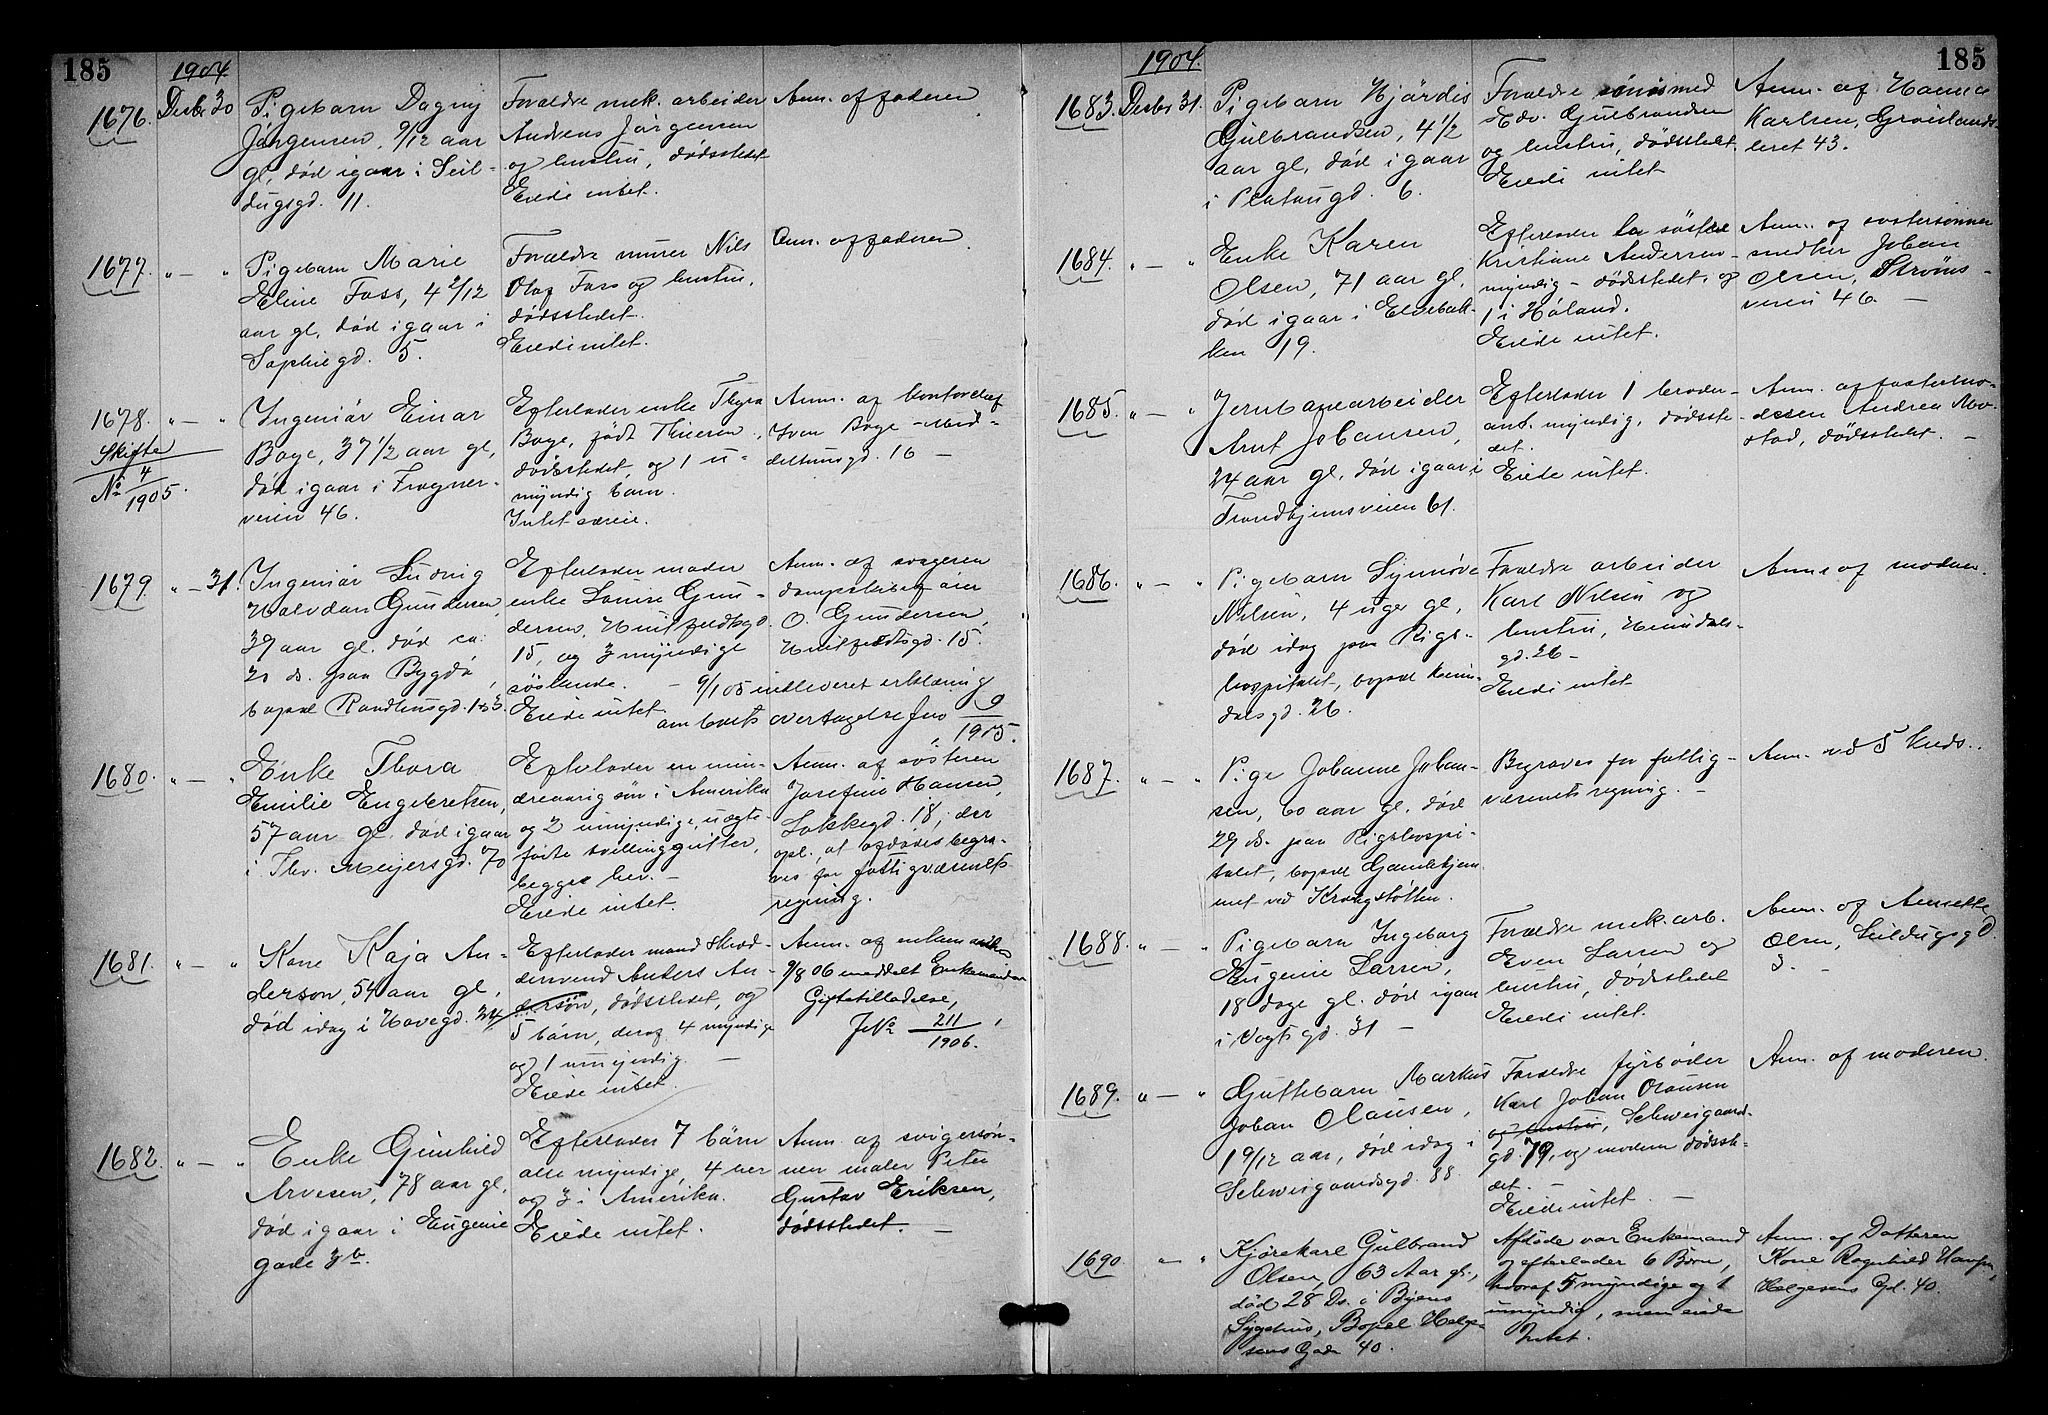 185
1904
1676. Desbr 30
Pigebarn Dagny
Jørgensen, 9/12 aar
gl, død igaar i Seil-
dugsgd. 11.
Forældre mek. arbeider
Andreas Jørgensen
og hustru, dødsstedet
Eiede intet.
Anm. af faderen
1677. " — "
Pigebarn Marie
Eline Foss, 4 2/12
aar gl, død igaar i
Sophiegd. 5.
Forældre murer Nils
Olaf Foss og hustru,
dødsstedet.
Eiede intet.
Anm. af faderen.
1678. " — "
Skifte
No 4/1905.
Ingeniør Einar
Boye, 37 1/2 aar gl,
død igaar i Frogner-
veien 46.
Efterlader enke Thyra
Boye, født
dødsstedet, og 1 u-
myndig barn.
Intet særeie.
Anm. af kontorchef
Boye - Mid-
deltunsgd. 16 —
1679. " — 31.
Ingeniør Ludvig
Halvdan Gundersen,
39 aar gl. død ca.
20 ds. paa Bygdø,
bopæl
Efterlader moder
enke Louise Gun-
dersen, Huitfeldtsgd.
15, og 3 myndige
søskende.
Eiede intet
Anm. af svogeren
dampskibsfører
O. Gundersen,
Huitfeldtsgd. 15.
— 9/1 05 indleveret erklæring
om boets overtagelse Jno 9/1905.
1680. " — "
Enke Thora
Emilie Engebretsen,
57 aar gl. død igaar
i Thv. Meyersgd. 70
Efterlader en min-
dreaarig søn i Amerika
og 2 umyndige, uægte-
fødte tvillinggutter,
begge her. —
Eiede intet.
Anm. af søsteren
Josefine Hansen,
Løkkegd. 18, der
opl., at afdøde begra-
ves for fattigvæsenets
regning.
1681. " — "
Kone Kaja An-
derson, 54 aar gl,
død idag i Hovegd. 24
Efterlader mand skræd-
dersvend Anders An-
derson, dødsstedet, og
5 børn, deraf 4 myndige
og 1 umyndig. —
Eiede intet.
Anm. af enkemanden
9/8 06 meddelt Enkemanden
Giftetilladelse,
JNo 211/1906.
1682. " — "
Enke Gunhild
Arvesen, 78 aar gl,
død igaar i Eugenie
gade 3b.
Efterlader 7 børn
alle myndige, 4 her
og 3 i Amerika.
Eiede intet.
Anm. af svigersøn-
nen maler Peter
Gustav Eriksen,
dødsstedet. —
1904.
185
1683. Desbr 31.
Pigebarn Hjørdis
Gulbrandsen, 4 1/2
aar gl, død igaar
i Platousgd. 6.
Forældre smed
Edv. Gulbrandsen
og hustru, dødsstedet.
Eiede intet
Anm. af Hanna
Karlsen, Grønlands-
leret 43.
1684. " — "
Enke Karen
Olsen, 71 aar gl,
død igaar i Ekebak-
ken 19.
Efterlader to søstre
Kristiane Andersen -
myndig - dødsstedet, og
1 i Høland.
Eiede intet.
Anm. af søstersønnen
snedker Johan
Olsen, Strøms-
veien 46. —
1685. " — "
Jernbanearbeider
Arnt Johansen,
24 aar gl, død igaar i
Trondhjemsveien 61.
Efterlader 1 broder -
ant. myndig, dødsste-
det.
Eiede intet.
Anm. af fostermo-
deren Andrea Mo-
stad, dødsstedet. —
1686. " — "
Pigebarn Synnøve
Nilsen, 4 uger gl,
død idag paa Rigs-
hospitalet, bopæl Heim-
dalsgd. 26.
Forældre arbeider
Karl Nilsen og
hustru, Heimdals-
gd. 26 —
Eiede intet
Anm. af moderen.
1687. " — "
Pige Johanne Johan-
sen, 60 aar gl. død
29 ds. paa Rigshospi-
talet, bopæl Gamlehjem-
met ved Krogstøtten.
Begraves for fattig-
væsenets regning. —
Anm. ved 5 kreds.
1688. " — "
Pigebarn Ingeborg
Eugenie Larsen,
18 dage gl. død igaar
i Vogtsgd. 31 —
Forældre mek. arb.
Even Larsen og
hustru, dødsstedet
Eiede intet.
Anm. af Annette
Olsen, Seildugsgd.
3. —
1689. " — "
Guttebarn Markus
Johan Olausen,
1 9/12 aar, død idag i
Schweigaardsgd. 88.
Forældre fyrbøder
Karl Johan Olausen
og hustru, Schweigaards-
gd. 79, og moderen dødsste-
det. —
Eiede intet. —
Anm. af moderen.
1690 " — "
Kjørekarl Gulbrand
Olsen, 63 Aar gl.,
død 28 Ds. i Byens
Sygehus, Bopel Helge-
sens Gade 40.
Afdøde var Enkemand
og efterlader 6 Børn,
hvoraf 5 myndige og 1
umyndig, men eiede
Intet.
Anm. af Datteren
Kone Ragnhild Hansen,
Helgesens Gd. 40.